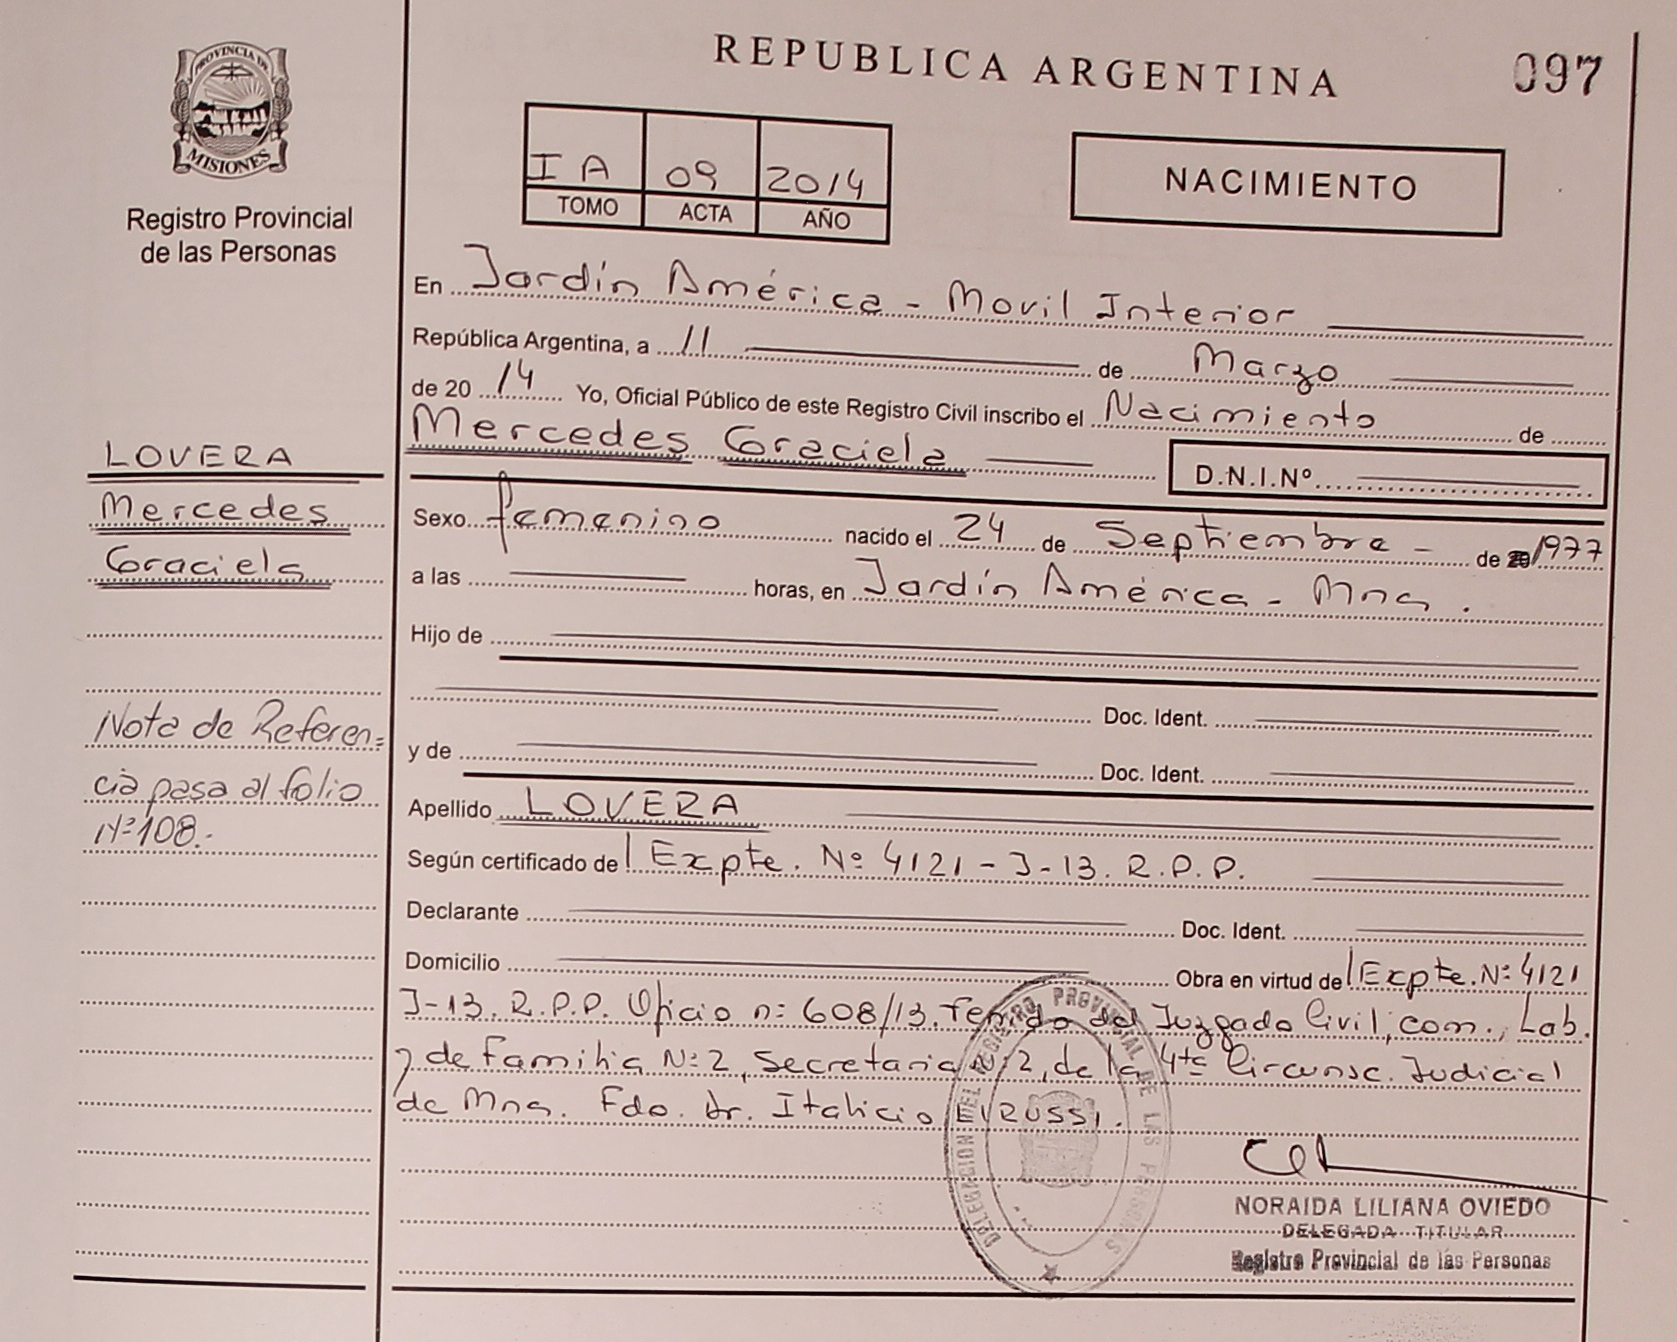 PROVINCIA DE
MISIONES
Registro Provincial
de las Personas
LOVERA
Mercedes
Graciela
Nota de Referen-
cia pasa al folio
Nº 108.-
REPUBLICA ARGENTINA
097
I A 09 2014
TOMO ACTA AÑO
NACIMIENTO
En Jardín América - Movil Interior
República Argentina, a 11 de Marzo
de 20 14 Yo, Oficial Público de este Registro Civil inscribo el Nacimiento de
Mercedes Graciela
D.N.I.Nº
Sexo femenino nacido el 24 de Septiembre - de 20 1977
a las horas, en Jardín América - Mnes.
Hijo de
Doc. Ident.
y de Doc. Ident.
Apellido LOVERA
Según certificado de Expte. Nº 4121 - J-13. R.P.P.
Declarante Doc. Ident.
Domicilio Obra en virtud de Expte. Nº 4121
J-13. R.P.P. Oficio nº 608/13. del Juzgado Civil, com., Lab.
y de Familia Nº 2, Secretaria Nº 2, de la 4ta Circunsc. Judicial
de Mnes. Fdo. Dr. Italicio
DELEGACION DEL REGISTRO PROVINCIAL DE LAS PERSONAS
NORAIDA LILIANA OVIEDO
DELEGADA TITULAR
Registro Provincial de las Personas